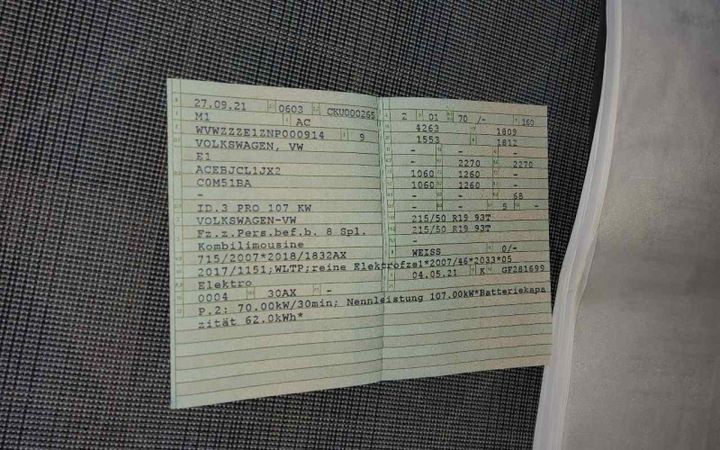 27.09.21 0603 CKU000265
M1 AC
WVWZZZE1ZNP000914 9
VOLKSWAGEN, VW
E1
ACEBJCL1JX2
COM51BA
-
ID.3 PRO 107 KW
VOLKSWAGEN-VW
Fz.z.Pers.bef.b. 8 Spl.
Kombilimousine
715/2007*2018/1832AX
2017/1151;WLTP;reine Elektrofzel*2007/46*2033*05
Elektro 04.05.21 K GF281699
0004 30AX -
P.2: 70.00kW/30min; Nennleistung 107.00kW*Batteriekapa
zität 62.0kWh*
2 01 70 /- 160
4263 1809
1553 1812
- - -
- 2270 2270
1060 1260 -
1060 1260 -
- - 68
- - 5 -
215/50 R19 93T
215/50 R19 93T
-
-
WEISS 0/-